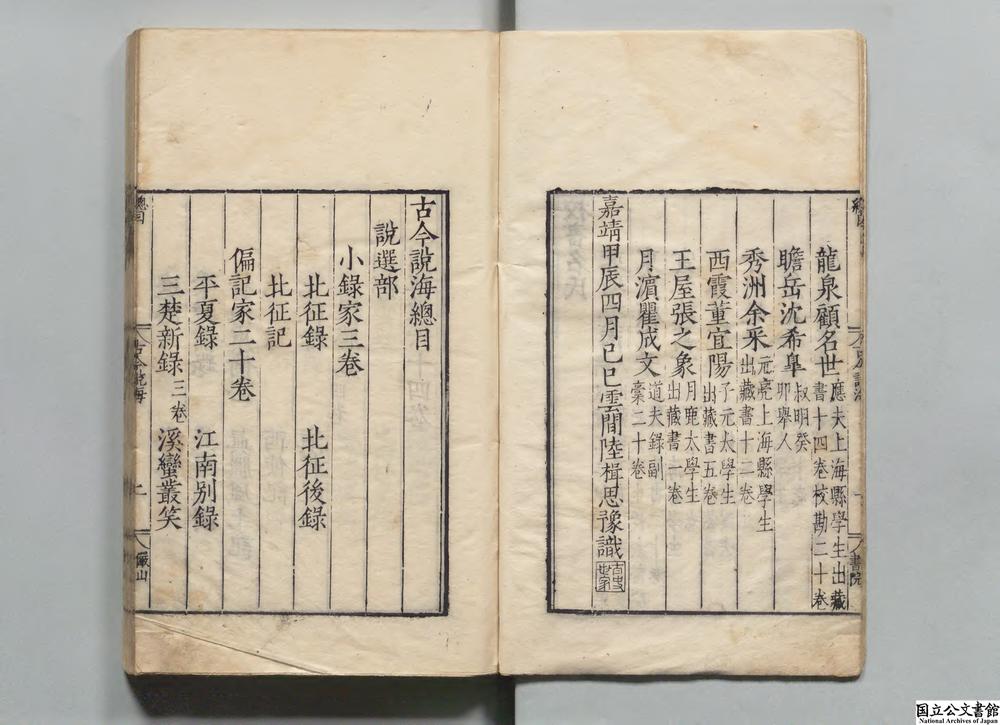 龍泉顧名世應夫上海縣學生出藏書十四卷校勘二十卷
瞻岳沈希皐叔明癸卯舉人
秀洲余采元亮上海縣學生出藏書十二卷
西霞董宜陽子元太學生出藏書五卷
王屋張之象月鹿太學生出藏書一卷
月濵瞿成文道夫錄副藁二十卷
嘉靖甲辰四月己巳雲間陸楫思豫識
書院
古今說海總目
說選部
小錄家三卷
北征錄 北征後錄
北征記
偏記家二十卷
平夏錄 江南别錄
三楚新錄三卷 溪蠻叢笑
總目
古今說海
儼山
国立公文書館
National Archives of Japan